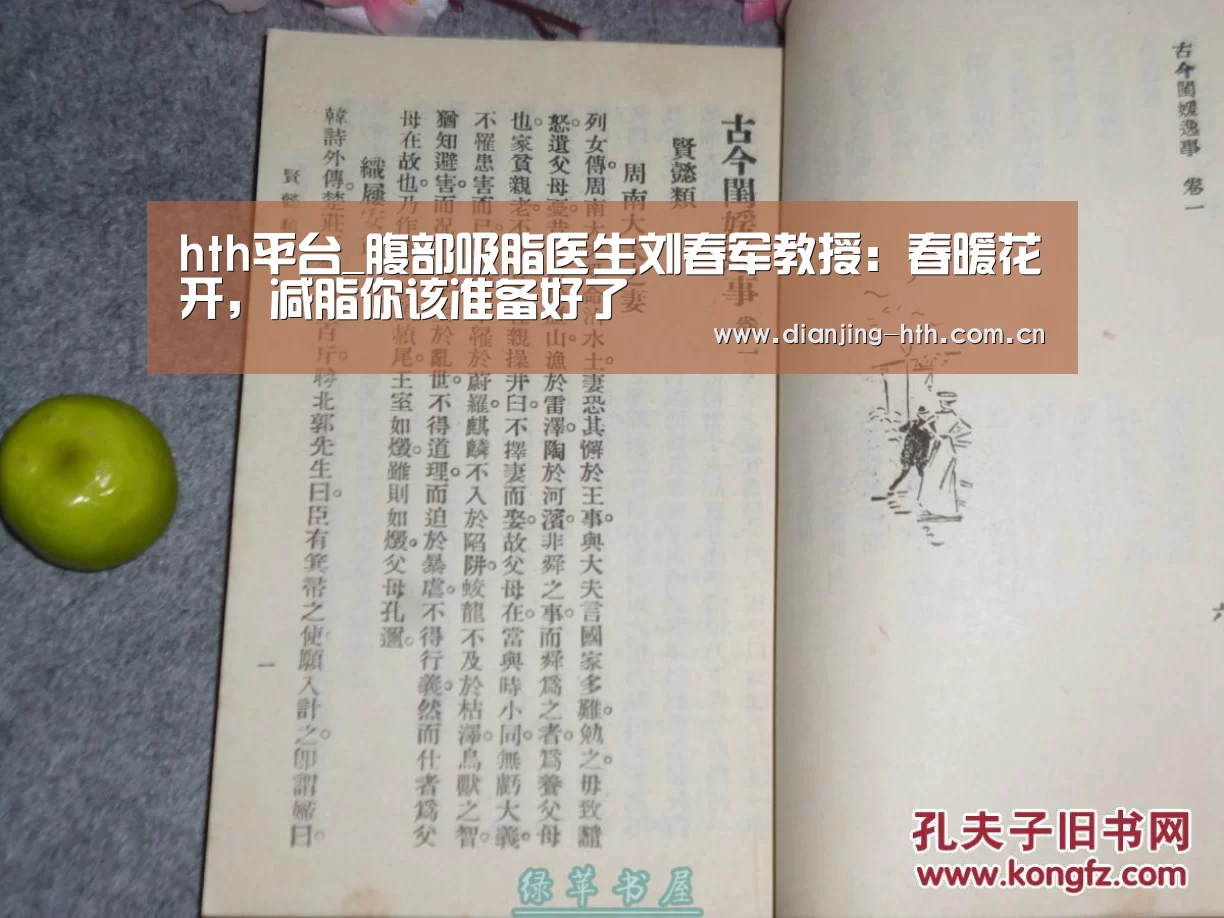 hth平台_腹部吸脂医生刘春军教授：春暖花
开，减脂你该准备好了
www.dianjing-hth.com.cn
古今閨媛逸事 卷一
六
古今閨媛事 卷一
賢懿類
周南大之妻
列女傳。周南大命治水土。妻恐其懈於王事。與大夫言國家多難。勉之。毋致譴
怒。遺父母憂。昔山漁於雷澤。陶於河濱。非舜之事。而舜爲之者。爲養父母
也。家貧親老。不親操井臼。不擇妻而娶。故父母在。當與時小同。無虧大義。
不罹患害而已罹於蔚羅。麒麟不入於陷阱。蛟龍不及於枯澤。鳥獸之智。
猶知避害。而况於亂世。不得道理。而迫於暴虐。不得行義。然而仕者爲父
母在故也。乃作頳尾。王室如燬。雖則如燬。父母孔邇。
織屨
韓詩外傳。楚莊百斤。聘北郭先生曰。臣有箕帚之使。願入計之。卽謂婦曰。
賢懿類
一
孔夫子旧书网
www.kongfz.com
绿苹书屋